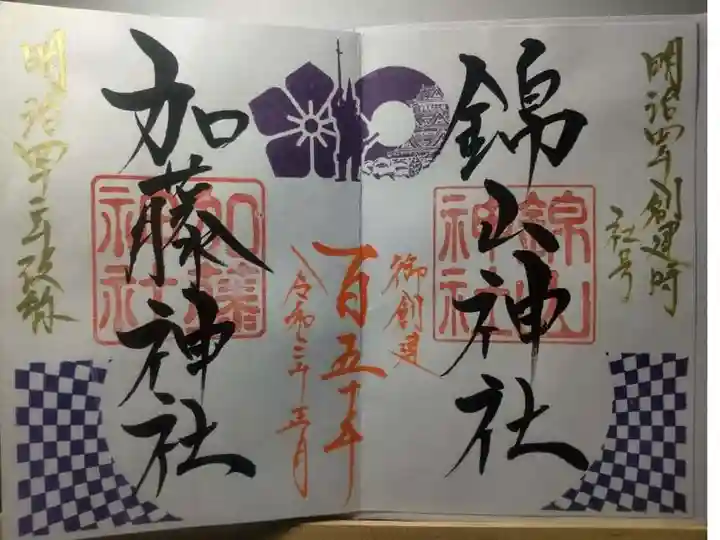 明治四年創建時
社号
錦山神社
錦山
神社
御創建
百五十年
令和三年三月
加藤神社
加藤
神社
明治四十二年改称